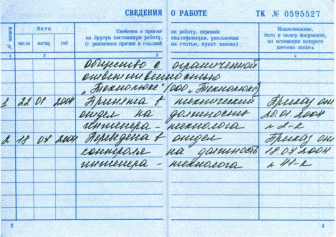 СВЕДЕНИЯ О РАБОТЕ
ТК № 0595527
№ записи
Дата
число месяц год
Сведения о приеме на работу, переводе
на другую постоянную работу, квалификации, увольнении
(с указанием причин и ссылкой на статью, пункт закона)
Наименование,
дата и номер документа,
на основании которого
внесена запись
1 2 3 4
Общество с ограниченной
ответственностью
1 22 01 2004 Принята в технический Приказ от
отдел на должность 20.01.2004
инженера - технолога
2 18 07 2004 Переведена в отдел Приказ от
контроля на должность 18.07.2004
инженера - технолога
2
3